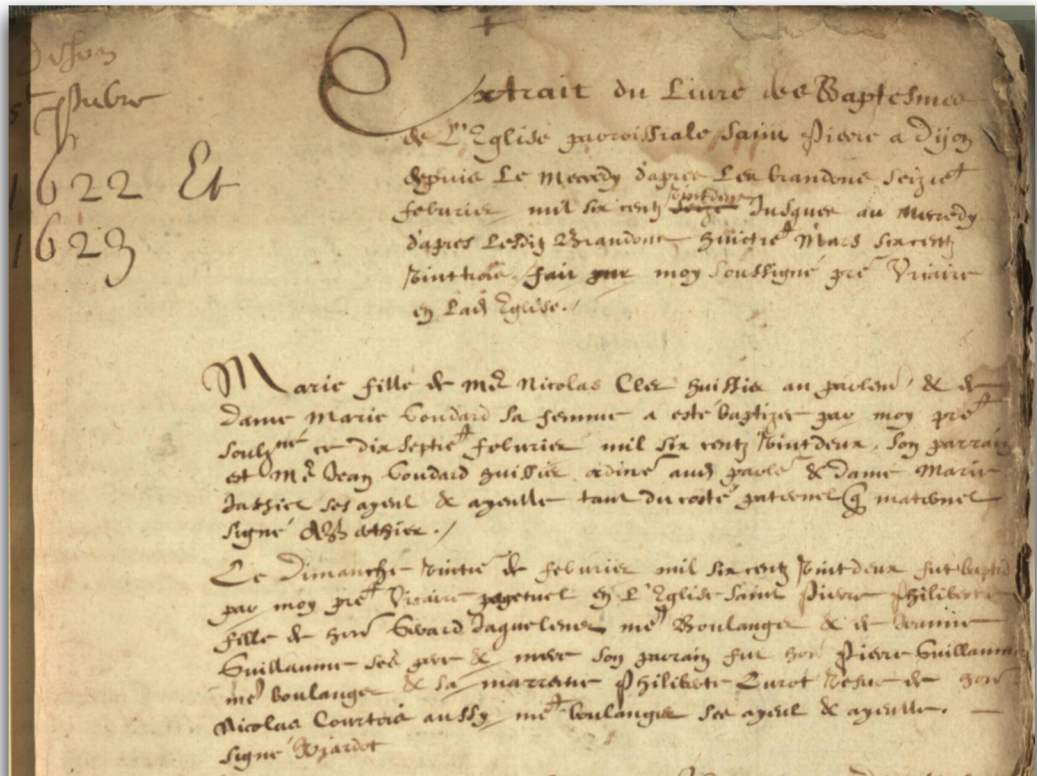 Dijon
St Pierre
1622 Et
1623
Extrait du Livre des Baptesmes
de L'Eglise paroissiale Saint Pierre a Dijon
depuis Le Mercredy d'apres Les brandons seizie
feburier mil six centz vint deux Jusques au Mercredy
d'apres Lesditz Brandons huictie Mars six centz
vint trois. fait par moy soussigné pre Vicaire
en Lad Eglise./
Marie fille de Me Nicolas Cler huissier au parlem & de
Dame Marie Goudard sa femme a esté baptizee par moy pre
soubzne ce dix septie feburier mil six centz vint deux. Son parrain
et Me Jean Goudard huissier ordine aud parle & Dame Marie
ses ayeul & ayeulle tant du costé paternel q maternel
signé
Le Dimanche vintie de feburier mil six centz vint deux fut baptisé
par moy pre Vicaire perpetuel en L'Eglise Saint Pierre Philiberte
fille de hon Jaquelener me Boulanger & de Jeanne
Guillaume ses pere & mere son parrain fut hon Pierre Guillaume
me boulanger & sa marreine Philiberte vefue de hon
Nicolas Courtois aussy me boulanger ses ayeul & ayeulle.
signé